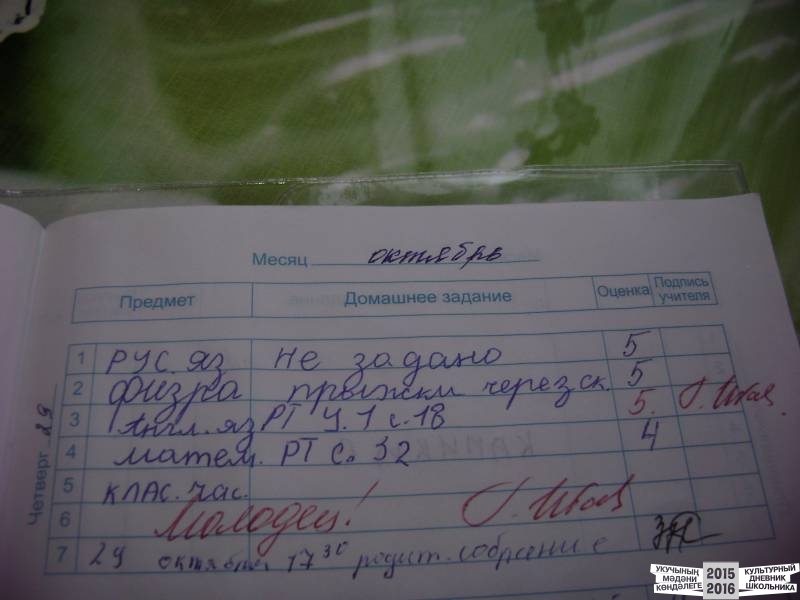 Месяц октябрь
Предмет Домашнее задание Оценка Подпись учителя
Четверг 29
1 Рус. яз Не задано 5
2 физра прыжки через ск. 5
3 Англ. яз РТ У. 1 с. 18 5.
4 матем. РТ с. 32 4
5 клас. час.
6 Молодец!
7 29 октября 17 30 родит. собрание
УКУЧЫНЫҢ МӘДӘНИ КӨНДӘЛЕГЕ 2015 2016 КУЛЬТУРНЫЙ ДНЕВНИК ШКОЛЬНИКА